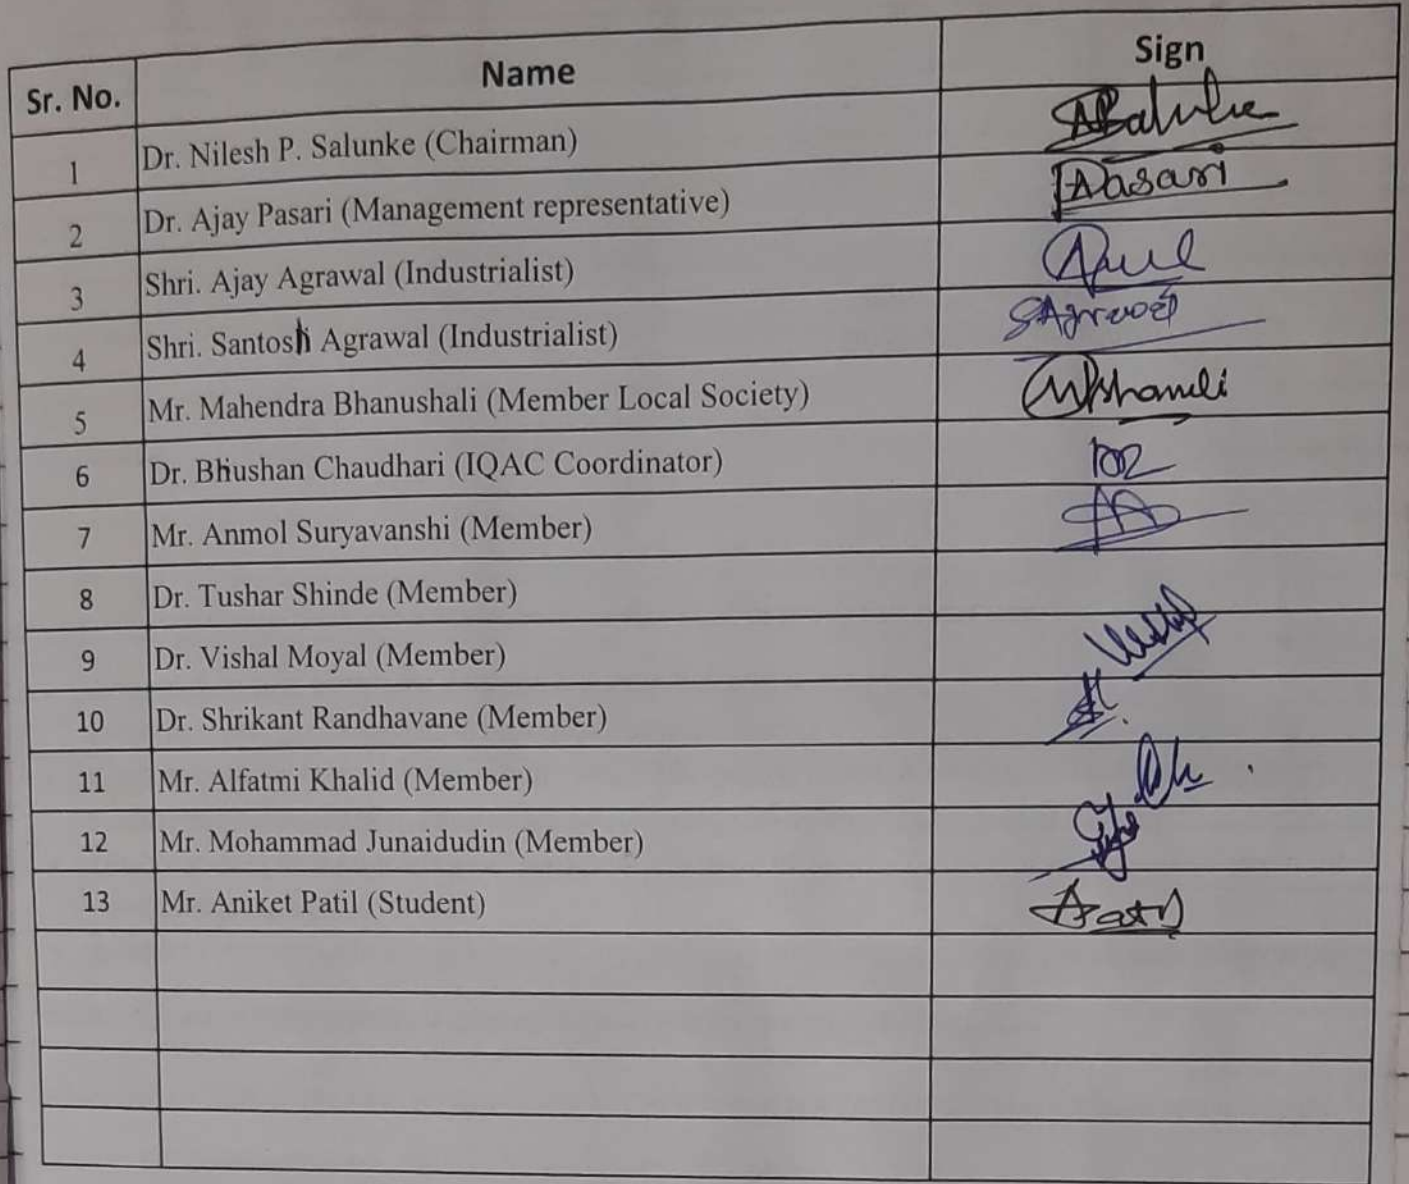 Sr. No. Name Sign
1 Dr. Nilesh P. Salunke (Chairman) Salunke
2 Dr. Ajay Pasari (Management representative) Pasari
3 Shri. Ajay Agrawal (Industrialist)
4 Shri. Santosh Agrawal (Industrialist) SAgrawal
5 Mr. Mahendra Bhanushali (Member Local Society)
6 Dr. Bhushan Chaudhari (IQAC Coordinator)
7 Mr. Anmol Suryavanshi (Member)
8 Dr. Tushar Shinde (Member)
9 Dr. Vishal Moyal (Member)
10 Dr. Shrikant Randhavane (Member)
11 Mr. Alfatmi Khalid (Member)
12 Mr. Mohammad Junaidudin (Member)
13 Mr. Aniket Patil (Student)